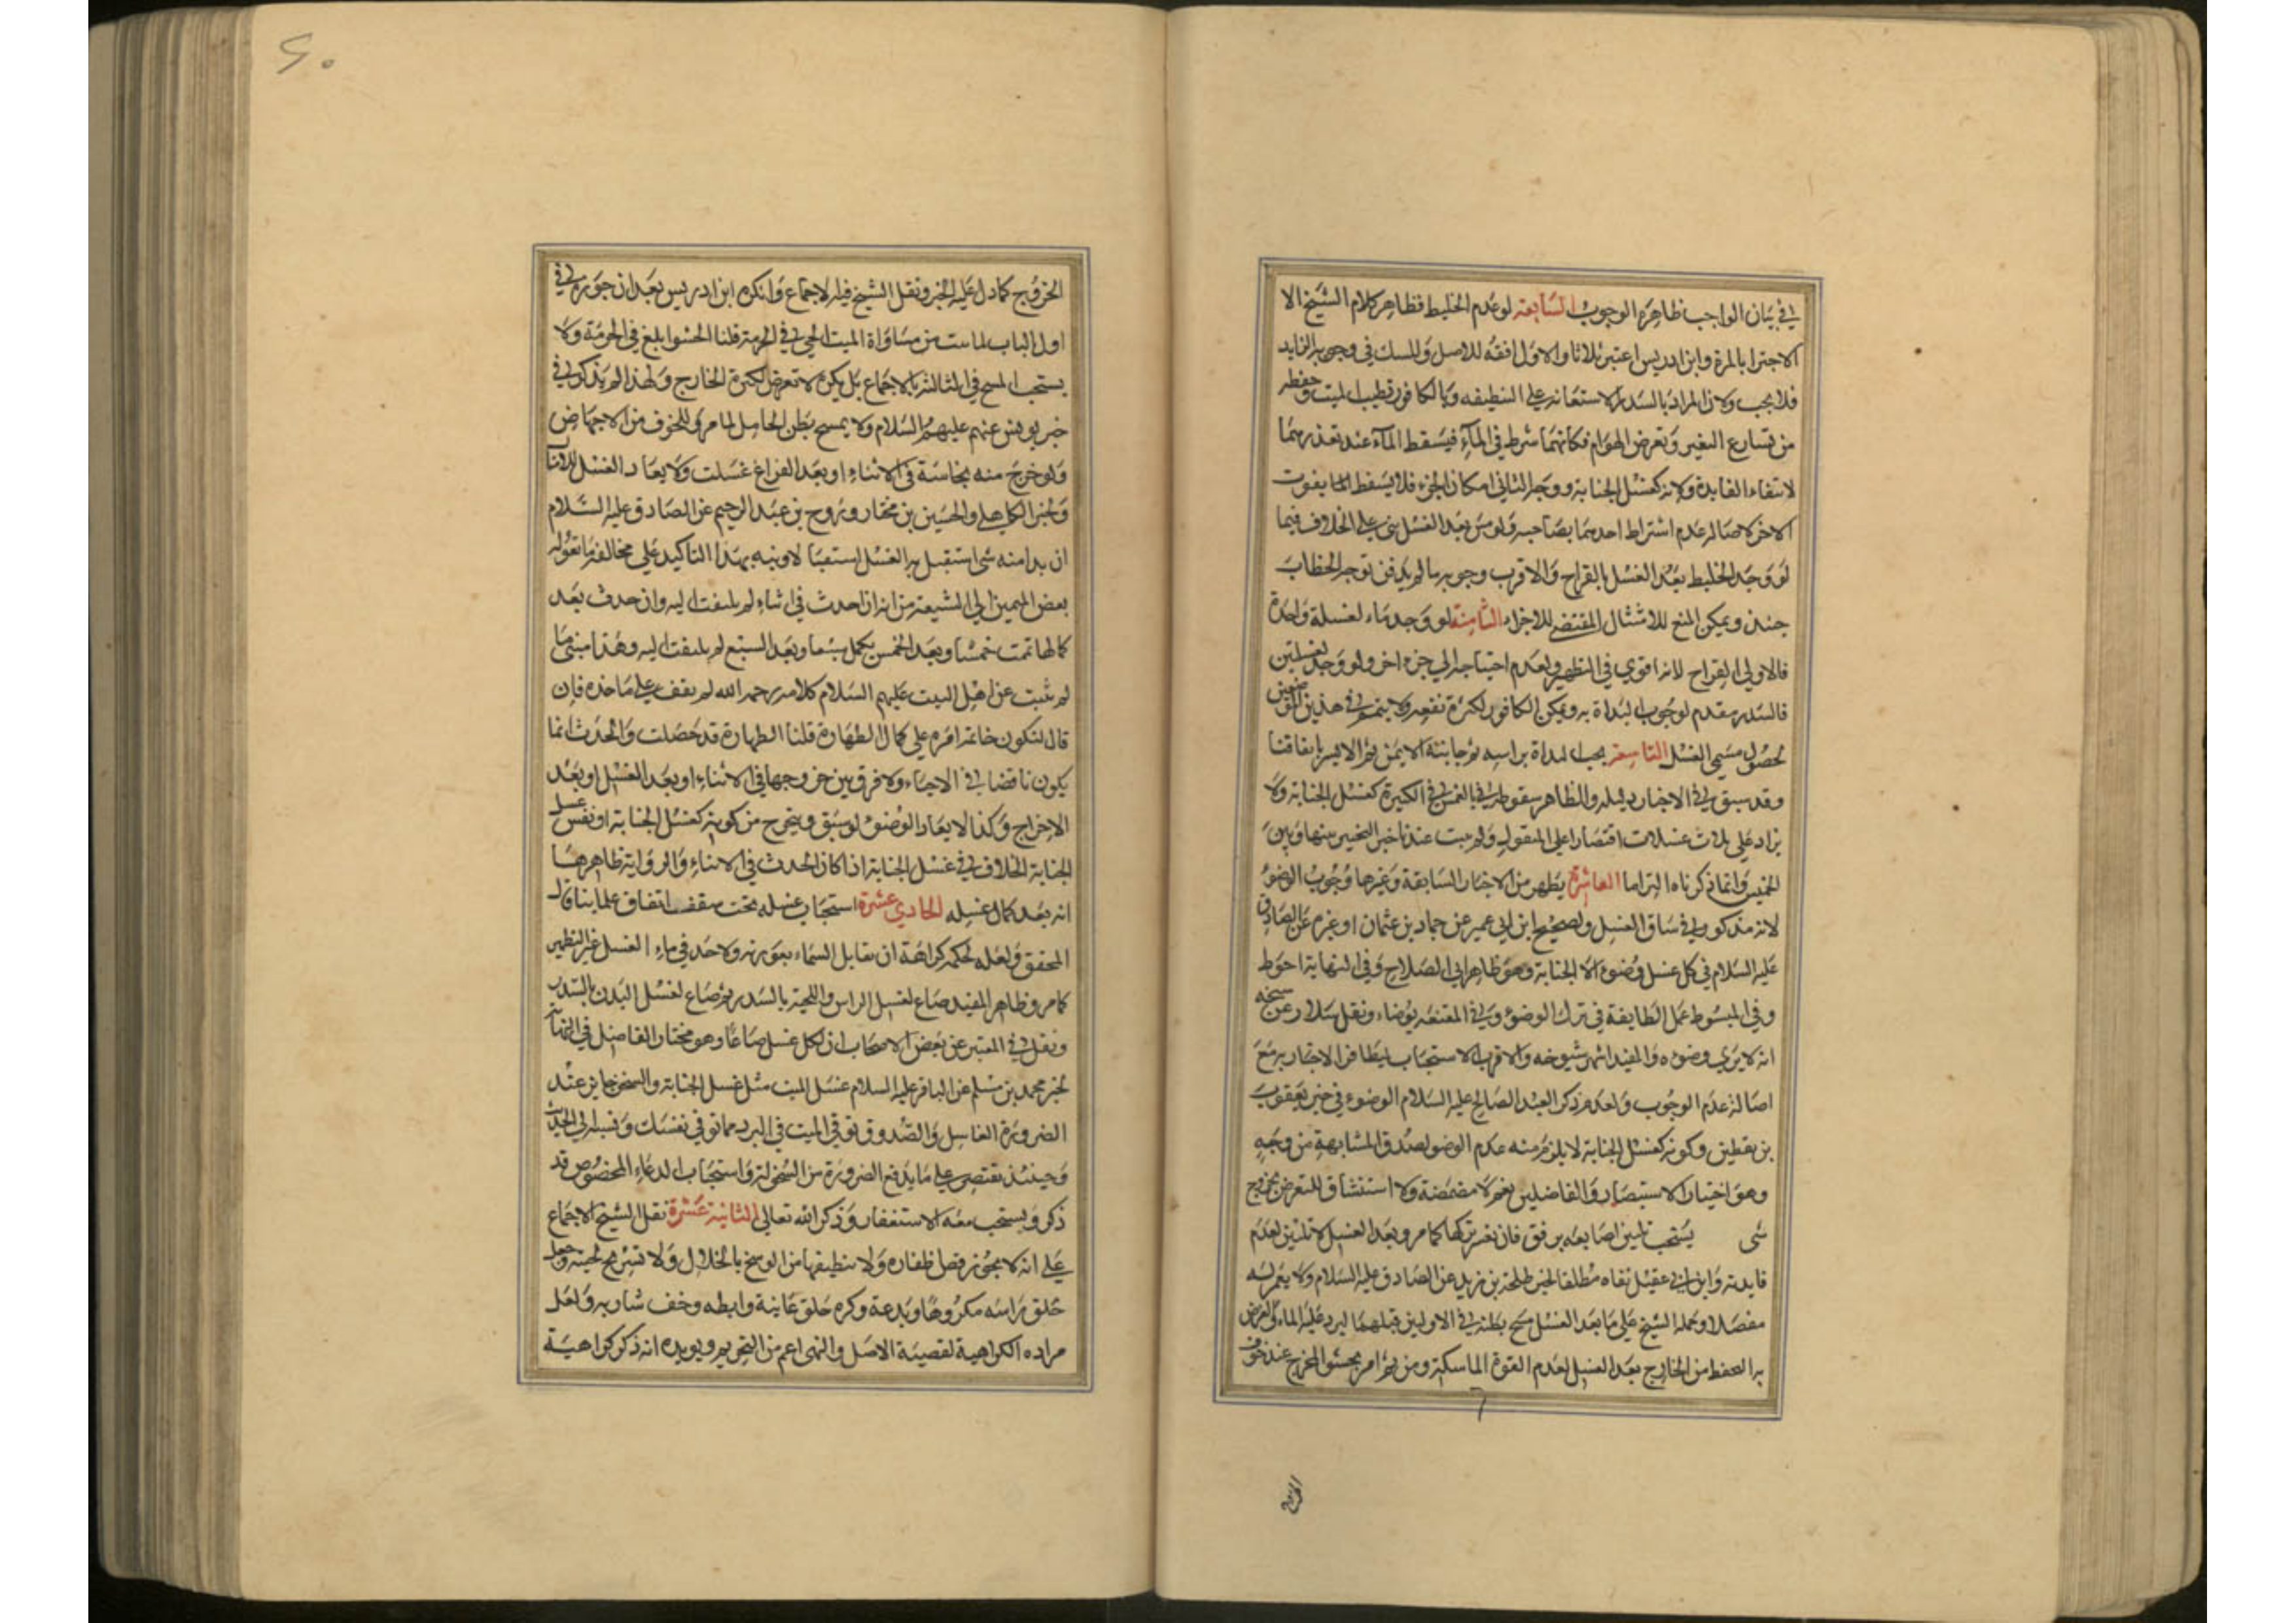 في بيان الواجب ظاهره الوجوب السابعة لو عدم الخليط فظاهر كلام الشيخ الا
الاجتزا بالمرة وابن ادريس اعتبر ثلاثا والاول افقه للاصل وللشك في وجوب الزايد
فلا يجب ولان المراد بالسدر الاستعانة على التنظيف وبالكافور تطييب الميت وحفظه
من تسارع التغير وتعرض الهوام فكانهما شرط في الماء فيسقط الماء عند تعذرهما
لانتفاء الفايدة ولانه كغسل الجنابة ووجه الثاني امكان الجزء فلا يسقط الما بفوت
الاخر لاصالة عدم اشتراط احدهما بصاحبه ولو مس بعد الغسل بني على الخلاف فيما
لو وجد الخليط بعد الغسل بالقراح والاقرب وجوبه ما لم يدفن توجه الخطاب
حينئذ ويمكن المنع للامتثال المقتضي للاجزاء الثامنة لو وجد ماء لغسلة واحدة
فالاولى القراح لانه اقوى في التطهير ولعدم احتياجه الى جزء اخر ولو وجد لغسلتين
فالسدر مقدم لوجوب البداة به ويمكن الكافور لكثرة نفعه ولا يتمم في هذين الموضعين
لحصول مسمى الغسل التاسعة يجب البداة براسه ثم جانبه الايمن ثم الايسر باتفاقنا
وقد سبق في الاخبار دليله والظاهر سقوطه بالغمس في الكثيرة كغسل الجنابة ولا
يزاد على ثلاث غسلات اقتصارا على المنقول ولم يثبت عندنا خبر التخيير بينها وبين
الخمس وانما ذكرناه الزاما العاشرة يظهر من الاخبار السابقة وغيرها وجوب الوضوء
لانه مذكور في سياق الغسل ولصحيح ابن ابي عمير عن حماد بن عثمان او غيره عن الصادق
عليه السلام في كل غسل وضوء الا الجنابة وهو ظاهر ابي الصلاح وفي النهاية احوط
وفي المبسوط عمل الطايفة في ترك الوضوء وفي المقنعة يوضاء ونقل سلار عن شيخه
انه لا يرى وضوءه والمفيد اشهر شيوخه والاقرب الاستحباب لتظافر الاخبار به مع
اصالة عدم الوجوب ولعدم ذكر العبد الصالح عليه السلام الوضوء في خبر يعقوب
بن يقطين وكونه كغسل الجنابة لا يلزم منه عدم الوضو لصدق المشابهة من وجه
وهو اختيار الاستبصار والفاضلين نعم لا مضمضة ولا استنشاق للتعرض بخروج
شى يستحب تليين اصابعه برفق فان تعسر تركها كما مر وبعد الغسل لا تليين لعدم
فايدته وابن ابي عقيل نفاه مطلقا لخبر طلحة بن زيد عن الصادق عليه السلام ولا يغمز له
مفصلا وحمله الشيخ على ما بعد الغسل مسح بطنه في الاوليين قبلهما ليرد عليه الماء والغرض
به التحفظ من الخارج بعد الغسل لعدم القوة الماسكة ومن ثم امر بحشو المخرج عند خوف
الخروج
۶۰
الخروج كما دل عليه الخبر ونقل الشيخ فيه الاجماع وانكره ابن ادريس بعد ان جوزه في
اول الباب لما ثبت من مساواة الميت الحي في الحرمة قلنا الحشو ابلغ في الحرمة ولا
يستحب المسح في الثالثة بالاجماع بل يكره لانه تعرض لكثرة الخارج ولهذا لم يذكر في
خبر يونس عنهم عليهم السلام ولا يمسح بطن الحامل لما مر وللخوف من الاجهاض
ولو خرج منه نجاسة في الاثناء او بعد الفراغ غسلت ولا يعاد الغسل
ولخبر الكاهلي والحسين بن مختار وروح بن عبد الرحيم عن الصادق عليه السلام
ان بدا منه شى استقبل به الغسل استعبا لاونبه بهذا التاكيد على مخالفة ما تقوله
بعض المميزين الى الشيعة من انه ان احدث في اثنائه لم يلتفت اليه وان حدث بعد
كمالها تمت خمسا وبعد الخمس يكمل سبعا وبعد السبع لم يلتفت اليه وهذا مبني ما
لم يثبت عن اهل البيت عليهم السلام كلامه رحمه الله لم يقف على ماخذه فان
قال لتكون خاتمة امره على كمال الطهارة قلنا الطهارة قد حصلت والحدث انما
يكون ناقضا في الاحياء ولا فرق بين خروجها في الاثناء او بعد الغسل او بعد
الاخراج وكذا لا يعاد الوضوء لو سبق ويتخرج من كونه كغسل الجنابة او نفس غسل
الجنابة الخلاف في غسل الجنابة اذا كان الحدث في الاثناء والرواية ظاهرها
انه بعد كمال غسله الحادي عشرة استحباب غسله تحت سقف اتفاق علمائنا قاله
المحقق ولعله لحكمة كراهة ان تقابل السماء بعورته ولا حد في ماء الغسل غير التطهير
كما مر وظاهر المفيد صاع لغسل الراس واللحية بالسدر ثم صاع لغسل البدن بالسدر
ونقل في المعتبر عن بعض الاصحاب ان لكل غسل صاعا وهو مختار الفاضل في النهاية
لخبر محمد بن مسلم عن الباقر عليه السلام غسل الميت مثل غسل الجنابة والسخن جايز عند
الضرورة الغاسل والصدوق توقي الميت في البرد مما توقي نفسك ونسبه الى الحديث
وحينئذ يقتصر على ما يدفع الضرورة من السخونة واستحباب الدعاء المخصوص قد
ذكر ويستحب معه الاستغفار وذكر الله تعالى الثانية عشرة نقل الشيخ الاجماع
على انه لا يجوز قص اظفاره ولا تنظيفها من الوسخ بالخلال ولا تسريح لحيته وجعل
حلق راسه مكروها وبدعة وكره حلق عانته وابطه وحف شاربه ولعل
مراده الكراهية لقضية الاصل والنهى اعم من التحريم ويويده انه ذكر كراهية